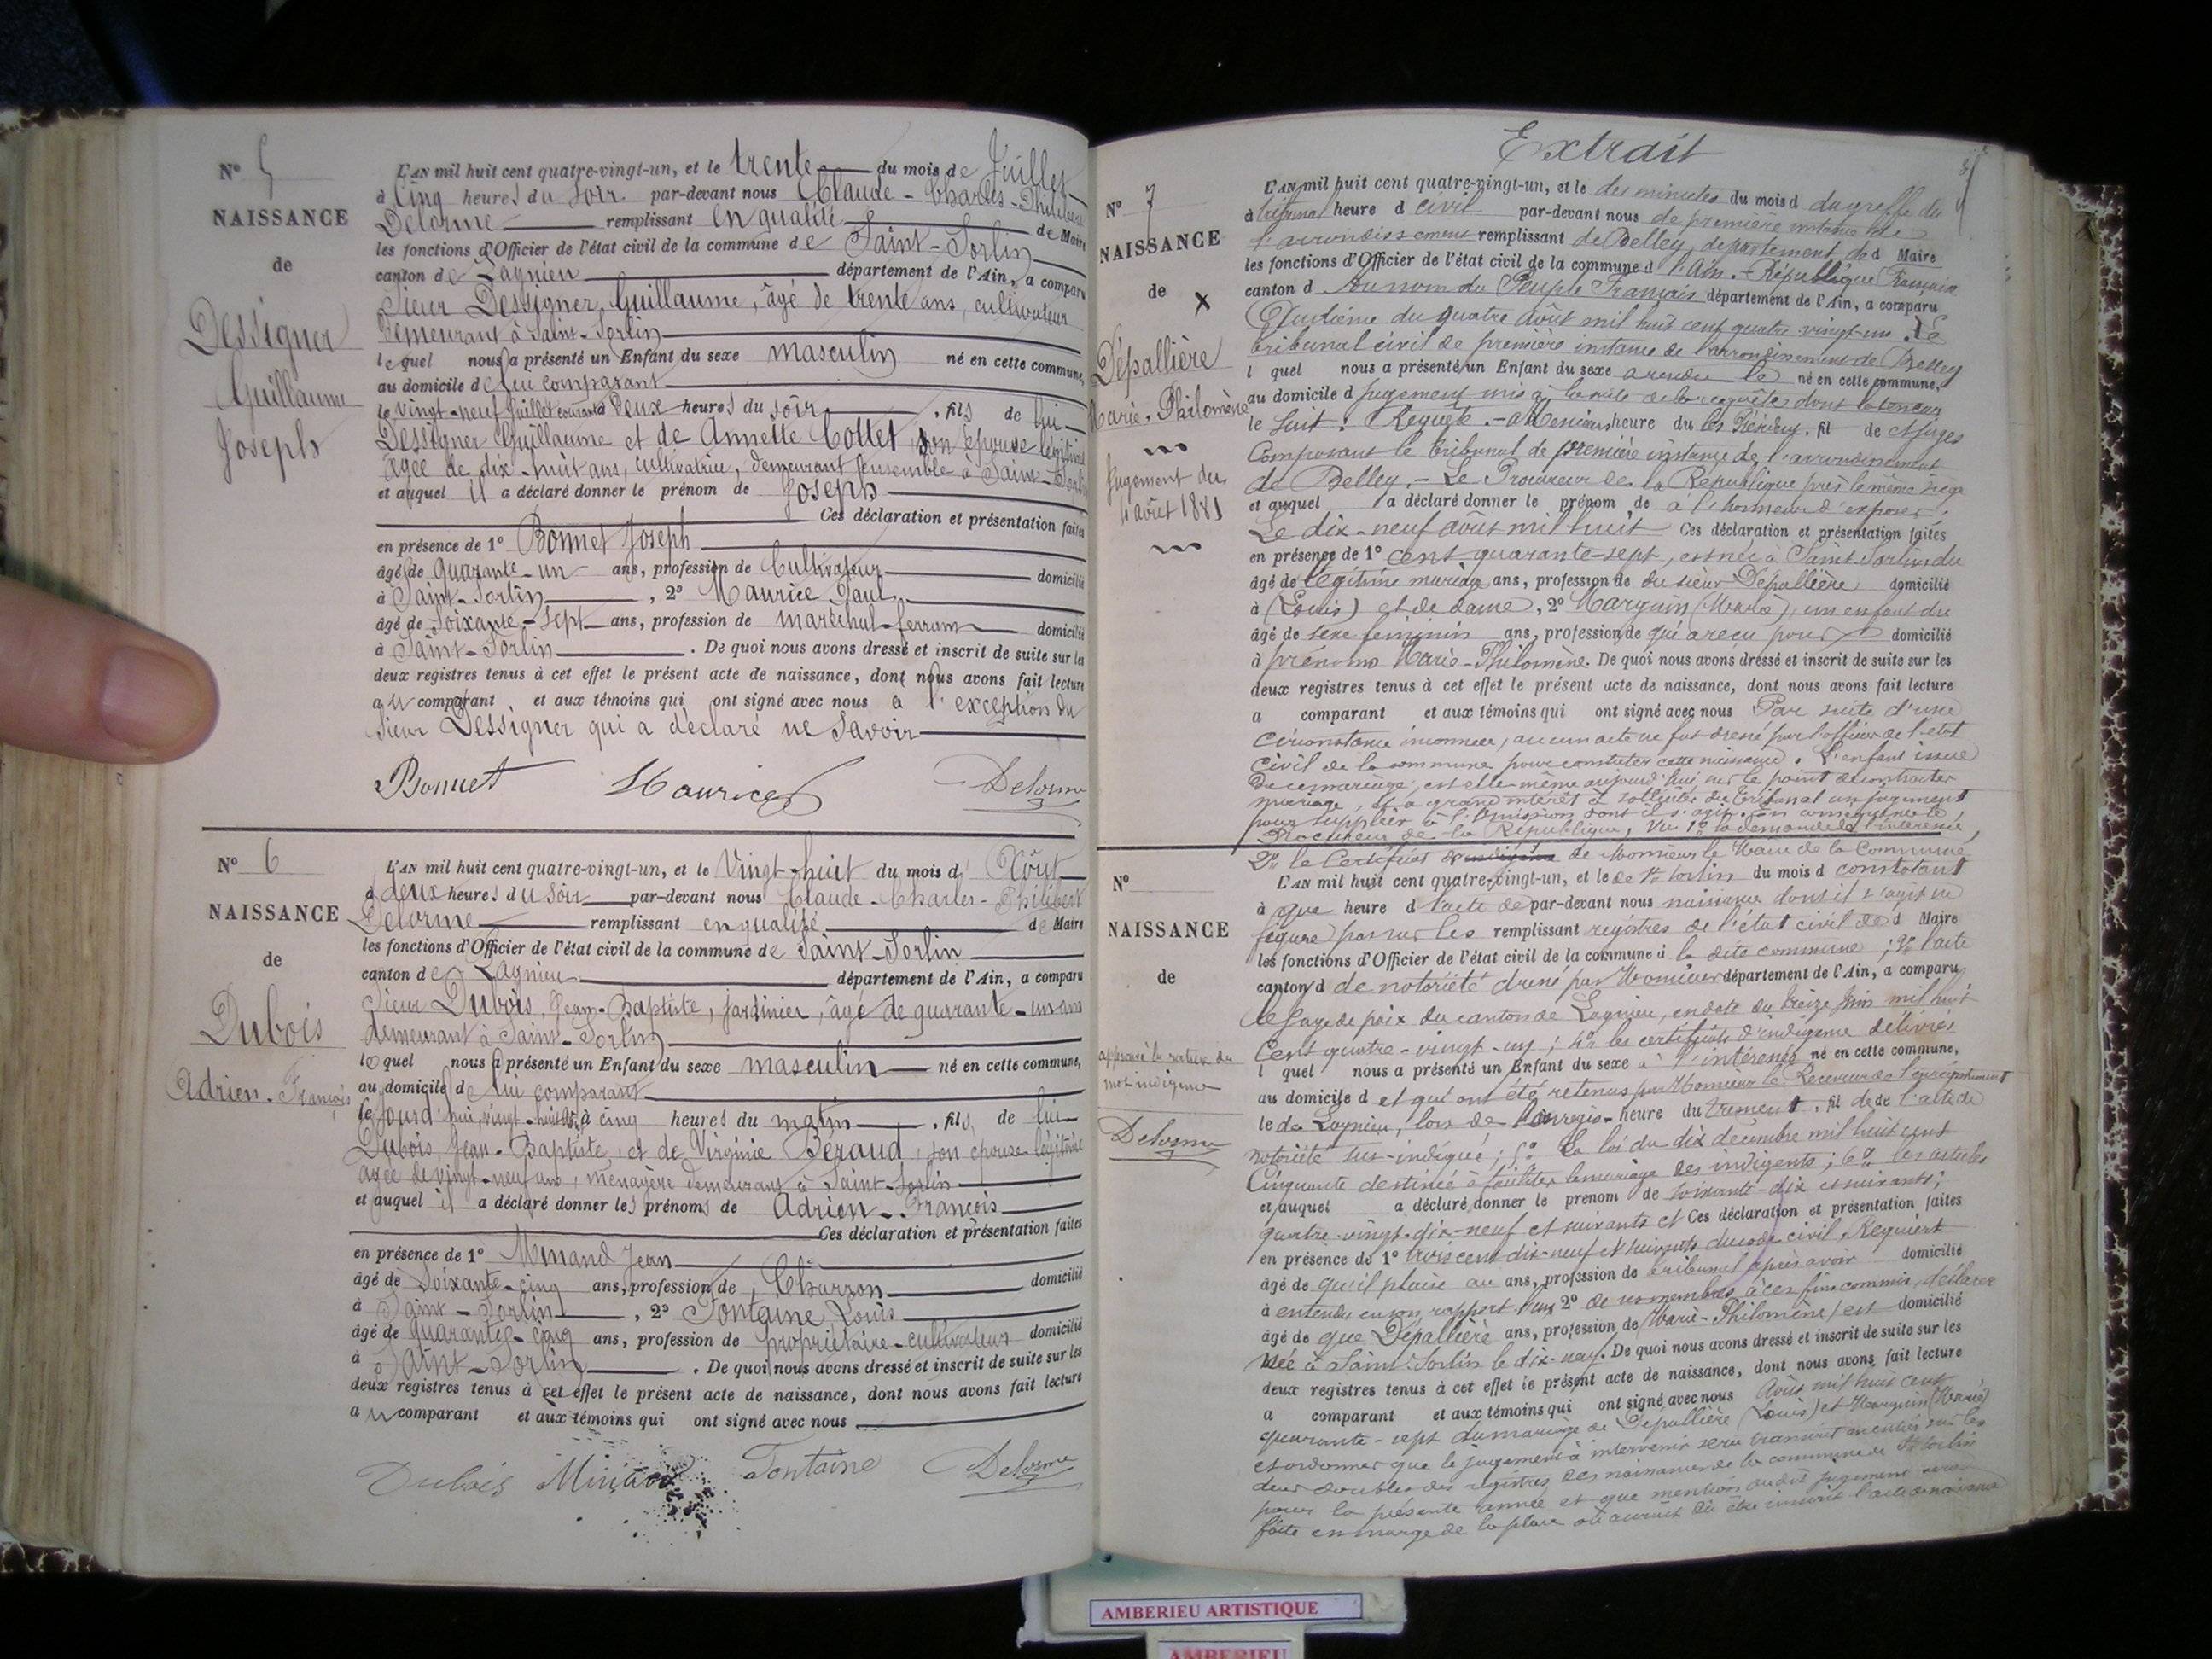 N° 5
NAISSANCE
de
Dessigner
Guillaume
Joseph
L'AN mil huit cent quatre-vingt-un, et le trente du mois de Juillet
à Cinq heures du soir par-devant nous Claude-Charles-Philibert
Delorme remplissant en qualité de Maire
les fonctions d'Officier de l'état civil de la commune de Saint-Sorlin
canton de Lagnieu département de l'Ain, a comparu
Sieur Dessigner Guillaume, âgé de trente ans, cultivateur
demeurant à Saint-Sorlin
lequel nous a présenté un Enfant du sexe masculin né en cette commune,
au domicile de lui comparant
le vingt-neuf Juillet courant à Deux heures du soir, fils de lui
Dessigner Guillaume et de Annette Cottet son épouse légitime
âgée de dix-huit ans, cultivatrice, demeurant ensemble à Saint-Sorlin
et auquel il a déclaré donner le prénom de Joseph
Ces déclaration et présentation faites
en présence de 1° Bonnet Joseph
âgé de quarante-un ans, profession de Cultivateur domicilié
à Saint-Sorlin, 2° Maurice Paul
âgé de soixante-sept ans, profession de maréchal-ferrant domicilié
à Saint-Sorlin. De quoi nous avons dressé et inscrit de suite sur les
deux registres tenus à cet effet le présent acte de naissance, dont nous avons fait lecture
au comparant et aux témoins qui ont signé avec nous à l'exception du
sieur Dessigner qui a déclaré ne savoir
Bonnet Maurice Delorme
N° 6
NAISSANCE
de
Dubois
Adrien-François
L'AN mil huit cent quatre-vingt-un, et le Vingt-huit du mois d'Août
à deux heures du soir par-devant nous Claude-Charles-Philibert
Delorme remplissant en qualité de Maire
les fonctions d'Officier de l'état civil de la commune de Saint-Sorlin
canton de Lagnieu département de l'Ain, a comparu
Sieur Dubois, Jean-Baptiste, jardinier, âgé de quarante-un ans
demeurant à Saint-Sorlin
lequel nous a présenté un Enfant du sexe masculin né en cette commune,
au domicile de lui comparant
le jourd'hui vingt-huit à cinq heures du matin, fils de lui
Dubois, Jean-Baptiste, et de Virginie Béraud, son épouse légitime
âgée de vingt-neuf ans, ménagère demeurant à Saint-Sorlin
et auquel il a déclaré donner les prénoms de Adrien-François
Ces déclaration et présentation faites
en présence de 1° Minand Jean
âgé de Soixante-cinq ans, profession de Charron domicilié
à Saint-Sorlin, 2° Fontaine Louis
âgé de quarante-cinq ans, profession de propriétaire-cultivateur domicilié
à Saint-Sorlin. De quoi nous avons dressé et inscrit de suite sur les
deux registres tenus à cet effet le présent acte de naissance, dont nous avons fait lecture
au comparant et aux témoins qui ont signé avec nous
Dubois Minand Fontaine Delorme
Extrait
N° 7
NAISSANCE
de
X
Dépallière
Marie-Philomène
Jugement du
4 août 1881
L'AN mil huit cent quatre-vingt-un, et le des minutes du mois d du greffe du
à tribunal heure d civil par-devant nous de première instance de
l'arrondissement remplissant de Belley, département de d Maire
les fonctions d'Officier de l'état civil de la commune d l'Ain. - République Française
canton d Au nom du Peuple Français département de l'Ain, a comparu
du quatre août mil huit cent quatre-vingt-un. Le
tribunal civil de première instance de l'arrondissement de Belley
l quel nous a présenté un Enfant du sexe a rendu le né en cette commune,
au domicile d jugement mis à la suite de la requête dont la teneur
le suit: Requête. - à Messieurs heure du les fil de et Juges
Composant le tribunal de première instance de l'arrondissement
de Belley. - Le Procureur de la République près le même siège
et auquel a déclaré donner le prénom de à l'honneur d'exposer,
Le dix-neuf août mil huit Ces déclaration et présentation faites
en présence de 1° cent quarante-sept, est née à Saint-Sorlin du
âgé de légitime mariage ans, profession de du sieur Depallière domicilié
à (Louis) et de dame, 2° Marguin (Marie), un enfant du
âgé de sexe féminin ans, profession de qui a reçu pour domicilié
à prénoms Marie-Philomène. De quoi nous avons dressé et inscrit de suite sur les
deux registres tenus à cet effet le présent acte de naissance, dont nous avons fait lecture
a comparant et aux témoins qui ont signé avec nous Par suite d'une
circonstance inconnue, aucun acte ne fut dressé par l'officier de l'état
Civil de la commune pour constater cette naissance. L'enfant issue
de ce mariage, est elle-même aujourd'hui sur le point de contracter
mariage, et a grand intérêt à solliciter du Tribunal un jugement
pour suppléer à l'omission dont il s'agit. En conséquence le,
Procureur de la République, Vu 1° la demande de l'intéressée,
2° le Certificat de Monsieur le Maire de la Commune
N°
NAISSANCE
de
approuvé la rature du
mot indigène
Delorme
L'AN mil huit cent quatre-vingt-un, et le de St Sorlin du mois d constatant
à que heure d l'acte de par-devant nous naissance dont il s'agit ne
figure pas sur les remplissant registres de l'état civil de d Maire
les fonctions d'Officier de l'état civil de la commune d la dite commune; 3° l'acte
canton d de notoriété dressé par Monsieur département de l'Ain, a comparu
le Juge de paix du canton de Lagnieu, en date du treize Juin mil huit
Cent quatre-vingt-un; 4° les certificats d'indigence délivrés
l quel nous a présenté un Enfant du sexe à l'intéressée né en cette commune,
au domicile d et qui ont été retenus par Monsieur le Receveur de l'enregistrement
le de Lagnieu, lors de l'enregis- heure du trement. fil de de l'acte de
notoriété sus-indiqué; 5° La loi du dix décembre mil huit cent
Cinquante destinée à faciliter le mariage des indigents; 6° les articles
et auquel a déclaré donner le prénom de soixante-dix et suivants;
quatre-vingt-dix-neuf et suivants et Ces déclaration et présentation faites
en présence de 1° trois cent dix-neuf et suivants du code civil. Requiert
âgé de qu'il plaise au ans, profession de tribunal après avoir domicilié
à entendu en son rapport l'un 2° de ses membres à ces fins commis, déclarer
âgé de que Dépallière ans, profession de (Marie-Philomène) est domicilié
née à Saint-Sorlin le dix-neuf. De quoi nous avons dressé et inscrit de suite sur les
deux registres tenus à cet effet le présent acte de naissance, dont nous avons fait lecture
a comparant et aux témoins qui ont signé avec nous Août mil huit cent
quarante-sept du mariage de Depallière (Louis) et Marguin (Marie)
et ordonner que le jugement à intervenir sera transcrit en entier sur les
deux doubles des registres des naissances de la commune de St Sorlin
pour la présente année et que mention dudit jugement sera
faite en marge de la place où aurait dû être inscrit l'acte de naissance
AMBERIEU ARTISTIQUE
AMBERIEU